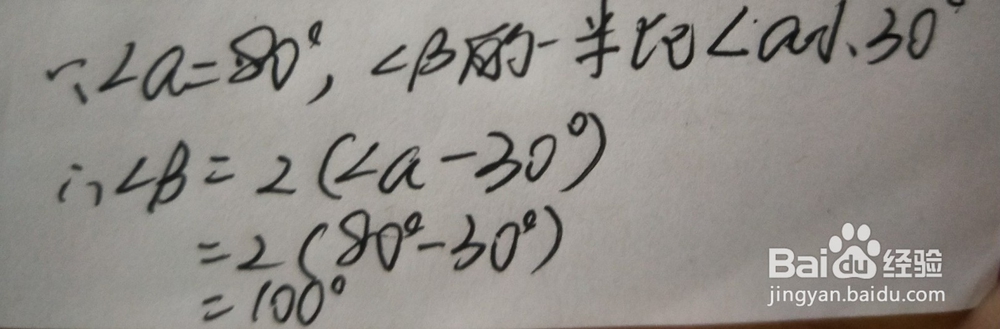 ∵∠α=80°,∠β的一半比∠α小30°
∴∠β=2(∠α-30°)
=2(80°-30°)
=100°
Baidu经验
jingyan.baidu.com